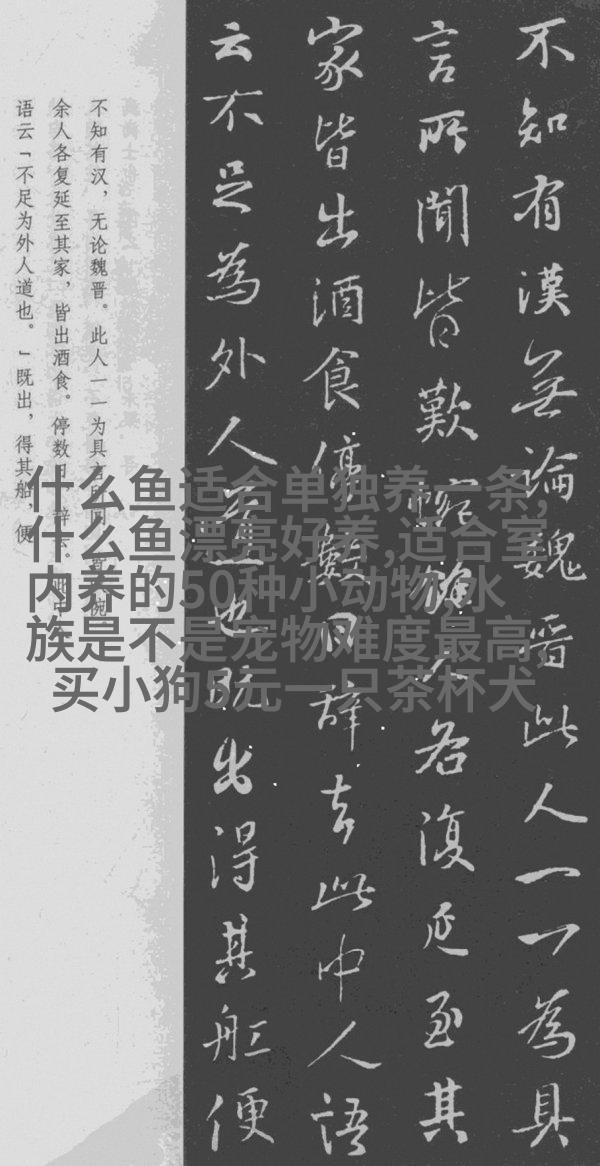 不知有漢無論魏晋此人一一為具
言所聞皆歎惋餘人各復延至其
家皆出酒食停數日辞去此中人語
云不足為外人道也既出得其舡便
不知有汉，无论魏晋。此人一一为具言所闻，皆叹惋。
余人各复延至其家，皆出酒食。停数日，辞去。此中人
语云「不足为外人道也。」既出，得其船，便
什么鱼适合单独养一条,
什么鱼漂亮好养,适合室
内养的50种小动物,水
族是不是宠物难度最高,
买小狗5元一只茶杯犬